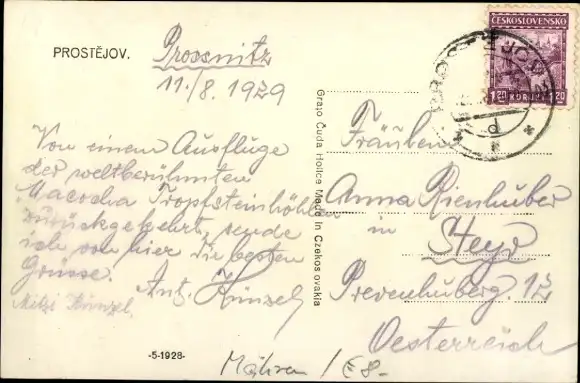 PROSTĚJOV.
Prossnitz
11./8. 1929
Von einem Ausfluge
der weltberühmten
Macocha Tropfsteinhöhlen
zurückgekehrt, sende
ich von hier die besten
Grüsse. Ant. Künzel
Mitzi Künzel
-5-1928-
Grajo Čuda Holice Made in Czekoslovakia
ČESKOSLOVENSKO
1.20 KORUNY 1.20
PROSTĚJOV
Anna Rienhuber
in
Steyr
12
Oesterreich
Mähren / 8.-